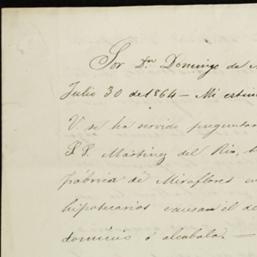 Sor Dn Domingo de
Julio 30 de 1864 — Mi
V. se ha servido
P.P. Martinez del Rio,
fabrica de Miraflores
hipotecarios causan el
dominio ó alcabala. —